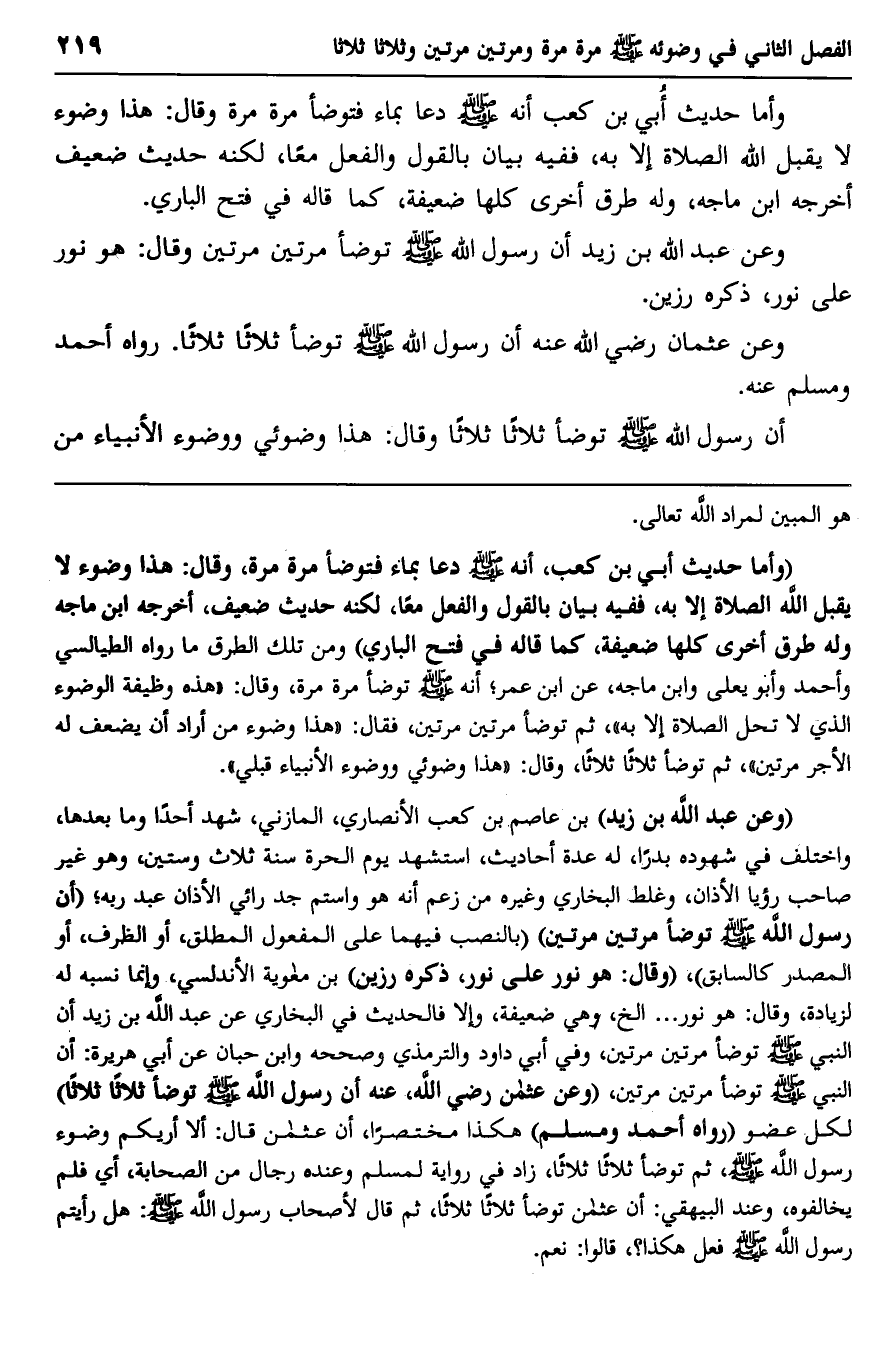 الفصل الثاني في وضوئه ﷺ مرة مرة ومرتين مرتين وثلاثا ثلاثا ٢١٩
وأما حديث أُبي بن كعب أنه ﷺ دعا بماء فتوضأ مرة مرة وقال: هذا وضوء
لا يقبل الله الصلاة إلا به، ففيه بيان بالقول والفعل معًا، لكنه حديث ضعيف
أخرجه ابن ماجه، وله طرق أخرى كلها ضعيفة، كما قاله في فتح الباري.
وعن عبد الله بن زيد أن رسول الله ﷺ توضأ مرتين مرتين وقال: هو نور
على نور، ذكره رزين.
وعن عثمان رضي الله عنه أن رسول الله ﷺ توضأ ثلاثًا ثلاثًا. رواه أحمد
ومسلم عنه.
أن رسول الله ﷺ توضأ ثلاثًا ثلاثًا وقال: هذا وضوئي ووضوء الأنبياء من
هو المبين لمراد اللَّه تعالى.
(وأما حديث أبي بن كعب، أنه ﷺ دعا بماء فتوضأ مرة مرة، وقال: هذا وضوء لا
يقبل اللَّه الصلاة إلا به، ففيه بيان بالقول والفعل معًا، لكنه حديث ضعيف، أخرجه ابن ماجه
وله طرق أخرى كلها ضعيفة، كما قاله في فتح الباري) ومن تلك الطرق ما رواه الطيالسي
وأحمد وأبو يعلى وابن ماجه، عن ابن عمر؛ أنه ﷺ توضأ مرة مرة، وقال: «هذه وظيفة الوضوء
الذي لا تحل الصلاة إلا به»، ثم توضأ مرتين مرتين، فقال: «هذا وضوء من أراد أن يضعف له
الأجر مرتين»، ثم توضأ ثلاثًا ثلاثًا، وقال: «هذا وضوئي ووضوء الأنبياء قبلي».
(وعن عبد اللَّه بن زيد) بن عاصم بن كعب الأنصاري، المازني، شهد أحدًا وما بعدها،
واختلف في شهوده بدرًا، له عدة أحاديث، استشهد يوم الحرة سنة ثلاث وستين، وهو غير
صاحب رؤيا الأذان، وغلط البخاري وغيره من زعم أنه هو واستم جد رائي الأذان عبد ربه؛ (أن
رسول اللَّه ﷺ توضأ مرتين مرتين) (بالنصب فيهما على المفعول المطلق، أو الظرف، أو
المصدر كالسابق)، (وقال: هو نور على نور، ذكره رزين) بن مغوية الأندلسي، وإنما نسبه له
لزيادة، وقال: هو نور... الخ، وهي ضعيفة، وإلا فالحديث في البخاري عن عبد اللَّه بن زيد أن
النبي ﷺ توضأ مرتين مرتين، وفي أبي داود والترمذي وصححه وابن حبان عن أبي هريرة: أن
النبي ﷺ توضأ مرتين مرتين، (وعن عثمٰن رضي اللَّه، عنه أن رسول اللَّه ﷺ توضأ ثلاثًا ثلاثًا)
لكل عضو (رواه أحمد ومسلم) هكذا مختصرًا، أن عثمٰن قال: ألا أريكم وضوء
رسول اللَّه ﷺ، ثم توضأ ثلاثًا ثلاثًا، زاد في رواية لمسلم وعنده رجال من الصحابة، أي فلم
يخالفوه، وعند البيهقي: أن عثمٰن توضأ ثلاثًا ثلاثًا، ثم قال لأصحاب رسول اللَّه ﷺ: هل رأيتم
رسول اللَّه ﷺ فعل هكذا؟، قالوا: نعم.